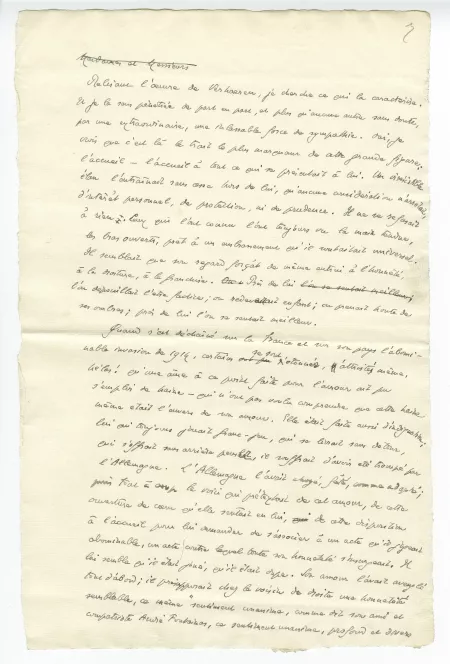 3
Mesdames et Messieurs
Relisant l'œuvre de Verhaeren, je cherche ce qui la caractérise.
Et je la sens pénétrée de part en part, et plus qu'aucune autre sans doute,
par une extraordinaire, une inlassable force de sympathie. Oui, je
crois que c'est là le trait le plus marquant de cette grande figure:
l'accueil – l'accueil à tout ce qui se présentait à lui. Un irrésistible
élan l'entraînait sans cesse hors de lui, qu'aucune considération
d'intérêt personnel, de protection, ni de prudence. Il ne se refusait
à rien. Ceux qui l'ont connu l'ont toujours vu la main tendue,
les bras ouverts, prêt à un embrassement qu'il souhaitait universel.
Il semblait que son regard forçât de même autrui à l'honnêteté,
à la droiture, à la franchise. Près de lui l'on se sentait meilleur;
l'on dépouillait l'être factice; on redevenait enfant; on prenait honte de
ses ombres; près de lui l'on se sentait meilleur.
Quand s'est déchaîné sur la France et sur son pays l'abomi-
nable invasion de 1914, certains se sont étonnés, attristés même.
Hélas! qu'une âme à ce point faite pour l'amour ait pu
s'emplir de haine – qui n'ont pas voulu comprendre que cette haine
même était l'envers de son amour. Elle était faite aussi d'indignation;
lui qui toujours jouait franc-jeu, qui se livrait sans détour,
qui s'offrait sans arrière pensée, il souffrait d'avoir été trompé par
l'Allemagne. L'Allemagne l'avait choyé, fêté, comme adopté;
tout à coup le voici qui de cet amour, de cette
ouverture de cœur qu'elle sentait en lui, de cette disposition
à l'accueil pour lui demander de s'associer à un acte qu'il jugeait
abominable, un acte contre lequel toute son honnêteté s'insurgeait. Il
lui semble qu'il était joué, qu'il était dupe. Son amour l'avait aveuglé
tout d'abord; il supposait chez le voisin de droite une honnêteté
semblable, ce même "sentiment unanime, comme dit son ami et
compatriote André Fontainas, ce sentiment unanime, profond et divers